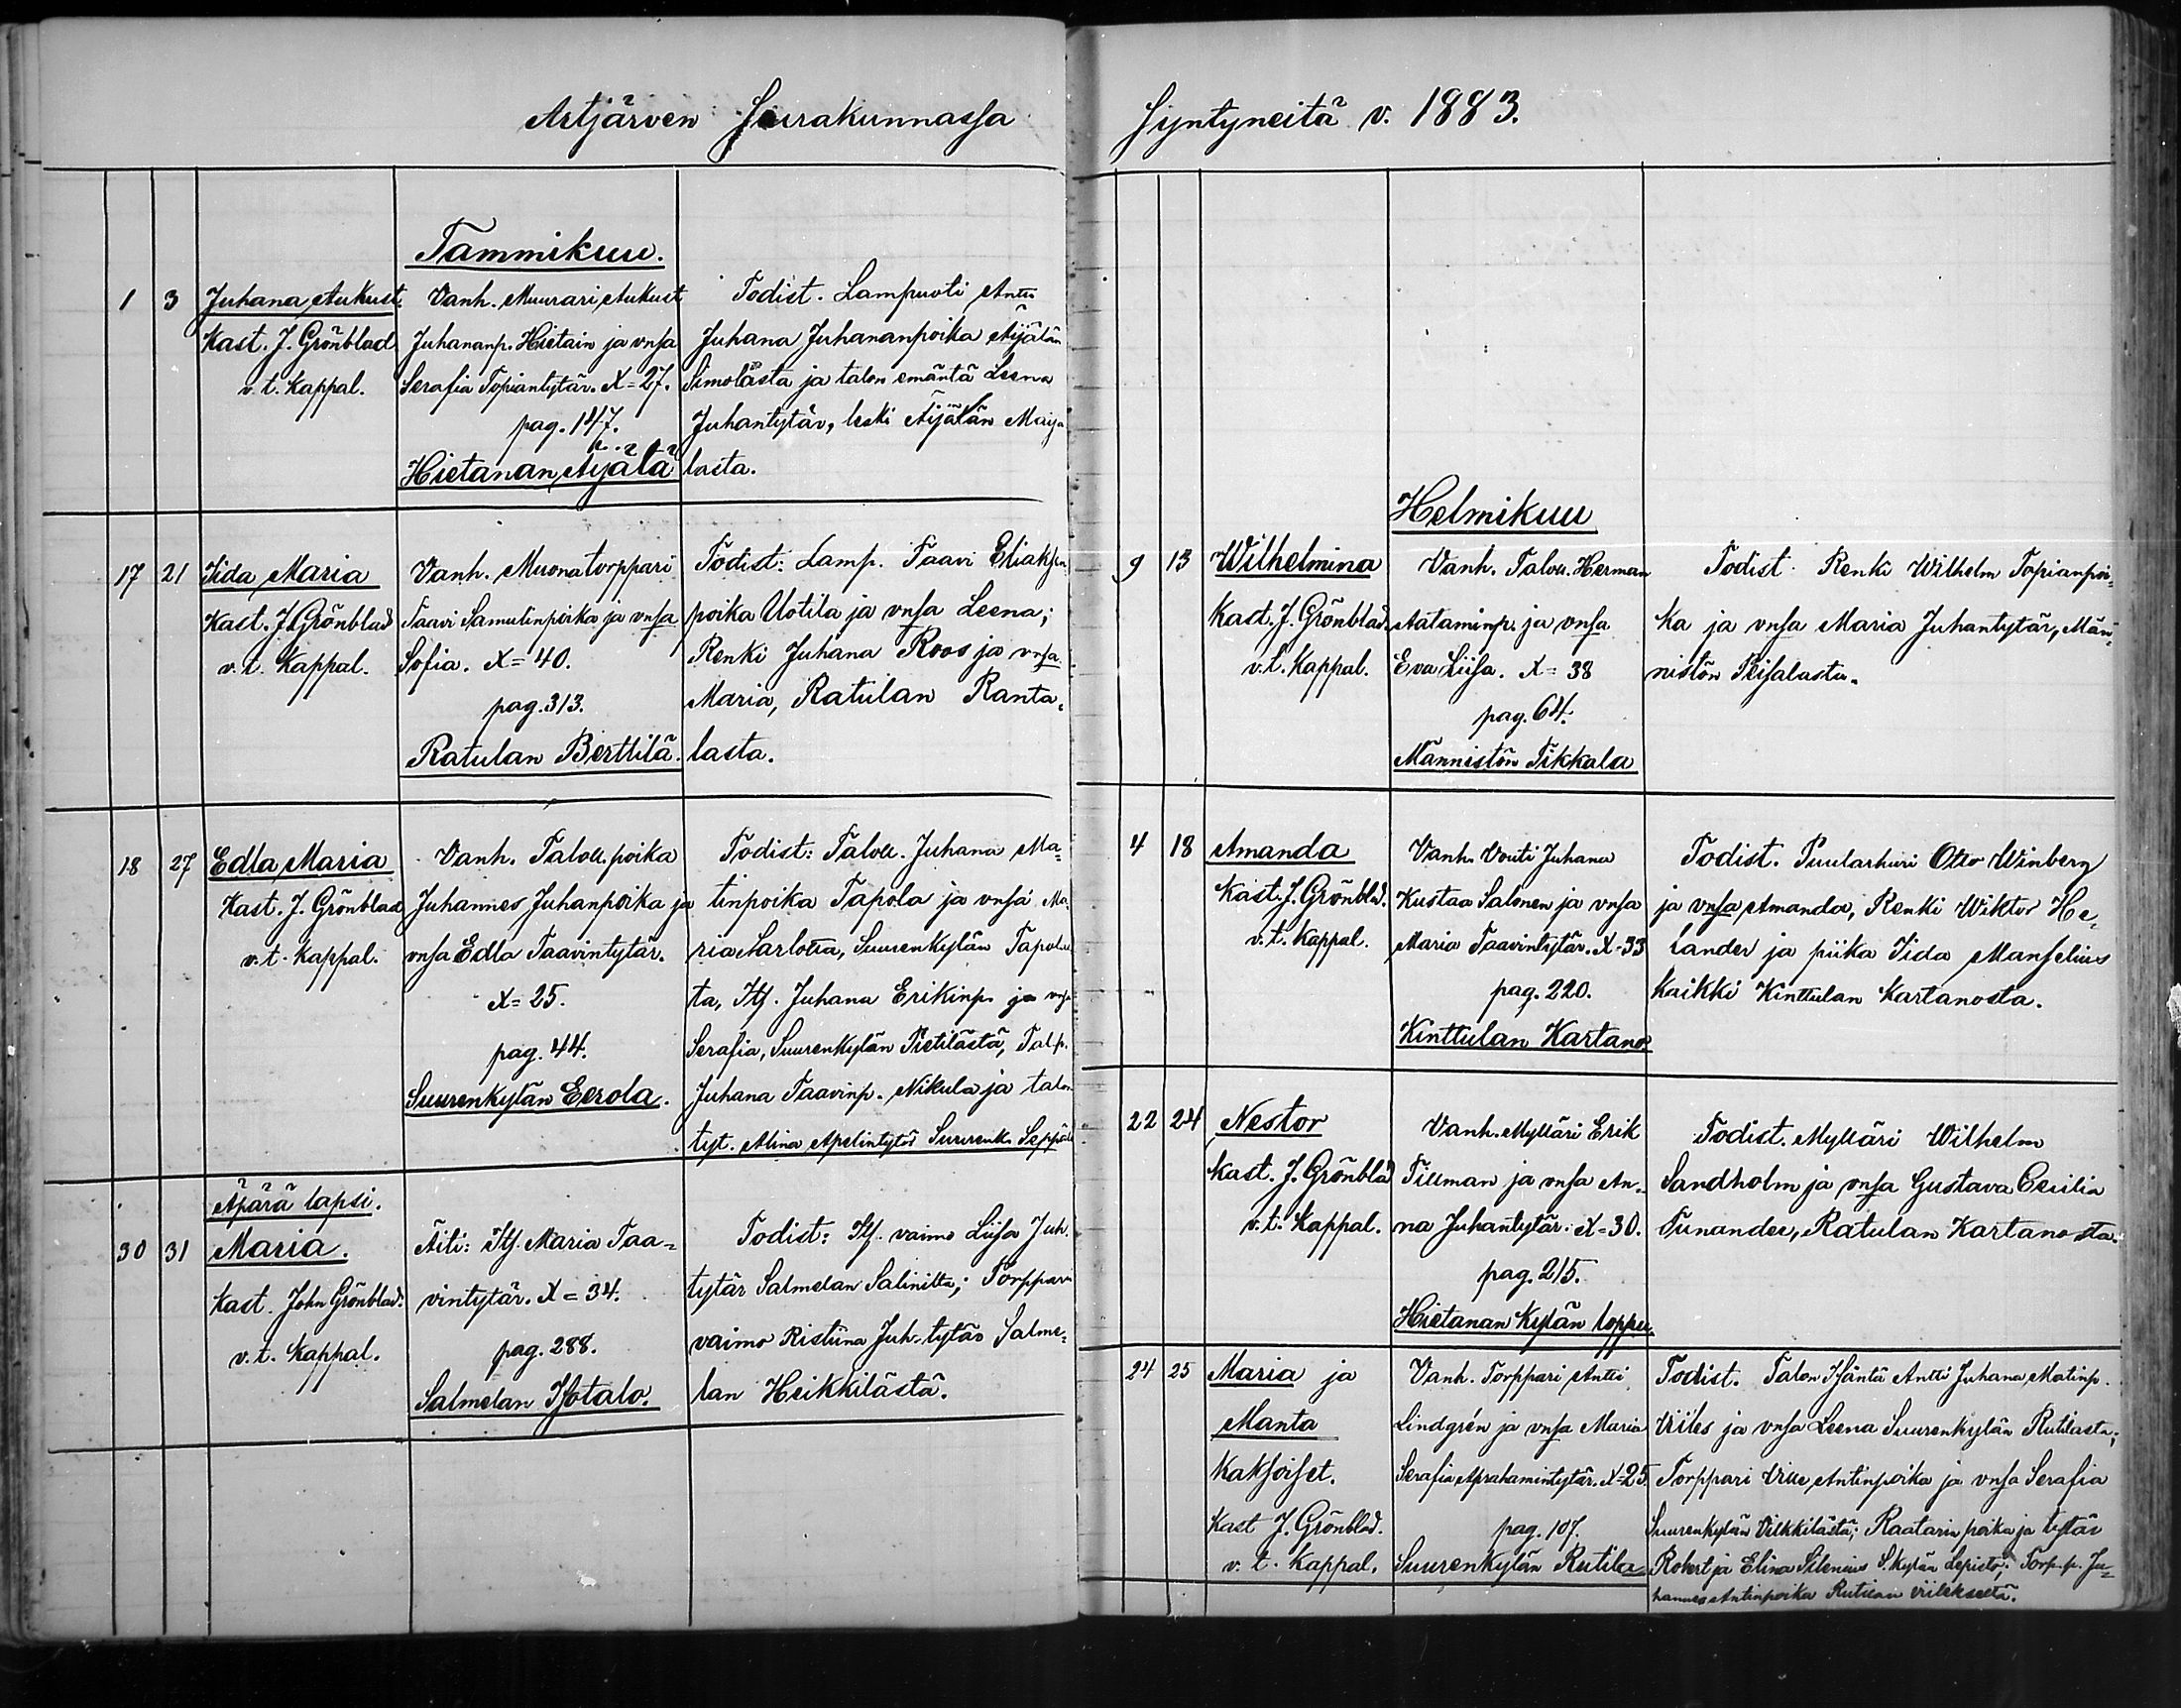 Artjärven Seurakunnassa
Tammikuu.
1 3 Juhana Aukust.
Kast. J. Grönblad
v. t. Kappal.
Vanh. Muurari Aukust
Juhananp. Hietain ja vnsa
Serafia Topiantytär. X = 27.
pag. 147.
Hietanan Äijälä
Todist. Lampuoti Antti
Juhana Juhananpoika Äijälän
Simolasta ja talon emäntä Leena
Juhantytär, leski Äijälän Maija
lasta.
17 21 Iida Maria
Kast. J. Grönblad
v. t. Kappal.
Vanh. Muonatorppari
Taavi Samulinpoika ja vnsa
Sofia. X = 40.
pag. 313.
Ratulan Berttilä.
Todist: Lamp. Taavi
poika Uotila ja vnsa Leena;
Renki Juhana Roos ja vnsa
Maria, Ratulan Ranta-
lasta.
18 27 Edla Maria
Kast. J. Grönblad
v. t. Kappal.
Vanh. Taloll. poika
Johannes Juhanpoika ja
vnsa Edla Taavintytär.
X = 25.
pag. 44.
Suurenkylän Eerola.
Todist: Taloll. Juhana Ma-
tinpoika Tapola ja vnsa Ma-
ria Sarlotta, Suurenkylän Tapolas
ta, Its. Juhana Erikinp. ja vnsa
Serafia, Suurenkylän Pietilästä, Talp.
Juhana Taavinp. Nikula ja talon
tyt. Alina Apelintytär Suurenk. Seppälä
Äpärä lapsi.
30 31 Maria.
Kast. John Grönblad.
v. t. Kappal.
Äiti: Its. Maria Taa-
vintytär. X = 34.
pag. 288.
Salmelan Isotalo.
Todist: Its. vaimo Liisa Juh.
tytär Salmelan Salinilta; Torppari
vaimo Ristiina Juh. tytär Salme-
lan Heikkilästä.
Syntyneitä v. 1883.
Helmikuu
9 13 Wilhelmina
Kast. J. Grönblad.
v. t. Kappal.
Vanh. Taloll. Herman
Aataminp. ja vnsa
Eva Liisa. X = 38
pag. 64.
Männistön Tikkala
Todist. Renki Wilhelm Topianpoi-
ka ja vnsa Maria Juhantytär, Män-
nistön
4 18 Amanda
Kast. J. Grönblad.
v. t. Kappal.
Vanh. Vouti Juhana
Kustaa Salonen ja vnsa
Maria Taavintytär. X = 33
pag. 220.
Kinttulan Kartano
Todist. Puutarhuri Otto Winberg
ja vnsa Amanda, Renki Wiktor He-
lander ja piika Iida Manselius
kaikki Kinttulan Kartanosta.
22 24 Nestor
Kast. J. Grönblad
v. t. Kappal.
Vanh. Mylläri Erik
Tillman ja vnsa An-
na Juhantytär. X = 30.
pag. 215.
Hietanan Kylän loppu.
Todist. Mylläri Wilhelm
Sandholm ja vnsa Gustava Cecilia
Tunander, Ratulan Kartanosta.
24 25 Maria ja
Manta
Kaksoiset.
Kast J. Grönblad.
v. t. Kappal.
Vanh. Torppari Antti
Lindgrén ja vnsa Maria
Serafia Aprahamintytär. X = 25.
pag. 107.
Suurenkylän Rutila
Todist. Talon Isäntä Antti Juhana Matinp.
Viiles ja vnsa Leena Suurenkylän Rutilasta;
Torppari Ville Antinpoika ja vnsa Serafia
Suurenkylän Vilkkilästä; Raatarin poika ja tytär
Robert ja Elina Silenius S.kylän Lepistö; Torp. p. Ju-
hannes Antinpoika Rutilan